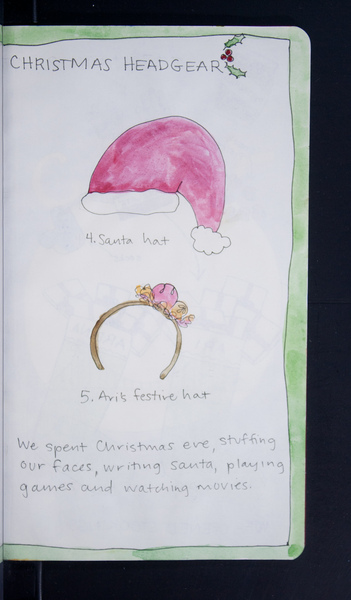 CHRISTMAS HEADGEAR
4. Santa hat
5. Ari's festive hat
We spent Christmas eve, stuffing
our faces, writing Santa, playing
games and watching movies.